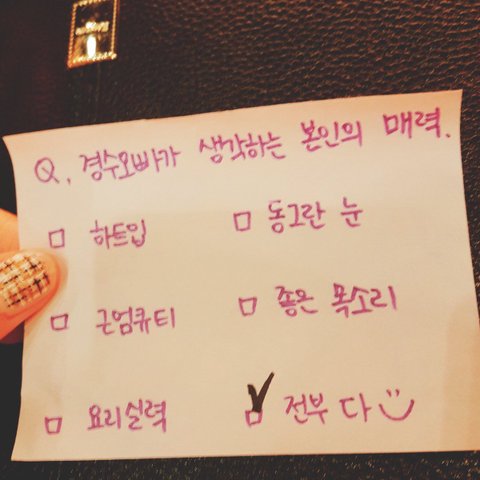 Q. 경수오빠가 생각하는 본인의 매력.
□ 하트입 □ 동그란 눈
□ 근엄큐티 □ 좋은 목소리
□ 요리실력 ☑ 전부 다